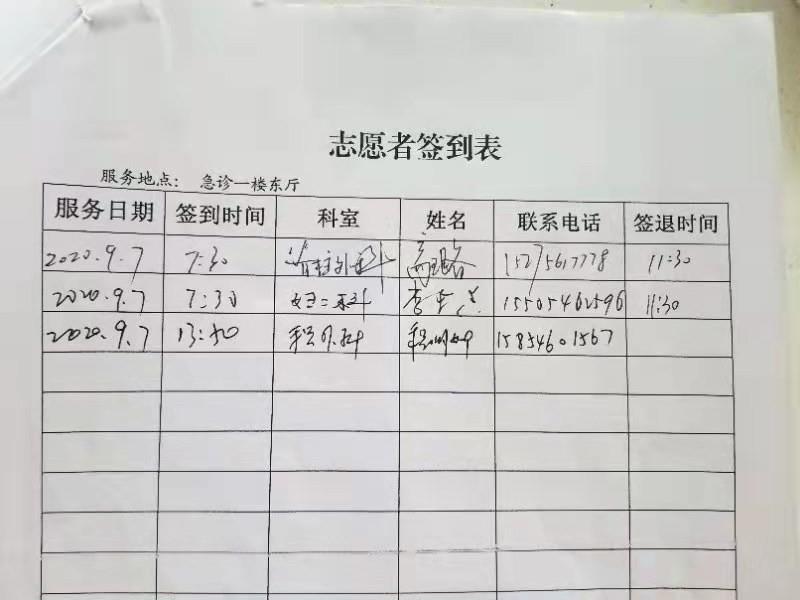 志愿者签到表
服务地点： 急诊一楼东厅
服务日期 签到时间 科室 姓名 联系电话 签退时间
2020.9.7 7:30 脊柱外科 高璐 15275617778 11:30
2020.9.7 7:30 妇二科 李 15505462596 11:30
2020.9.7 13:50 外科 15854601567